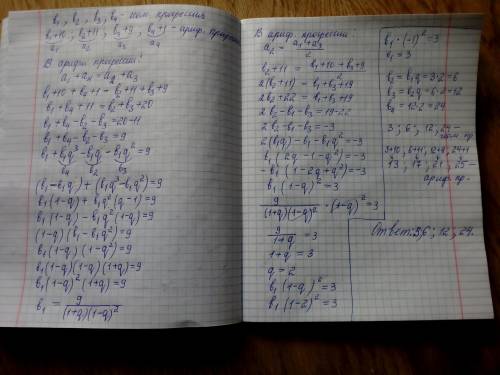 b₁, b₂, b₃, b₄ - геом. прогрессия
b₁+10, b₂+11, b₃+9, b₄+1 - ариф. прогрессия
a₁ a₂ a₃ a₄
В арифм. прогрессии:
a₁+a₄=a₂+a₃
b₁+10+b₄+1=b₂+11+b₃+9
b₁+b₄+11=b₂+b₃+20
b₁+b₄-b₂-b₃=20-11
b₁+b₄-b₂-b₃=9
b₁+b₁q³-b₁q-b₁q²=9
b₄ b₂ b₃
(b₁-b₁q)+(b₁q³-b₁q²)=9
b₁(1-q)+b₁q²(q-1)=9
b₁(1-q)-b₁q²(1-q)=9
(1-q)(b₁-b₁q²)=9
b₁(1-q)(1-q²)=9
b₁(1-q)(1-q)(1+q)=9
b₁(1-q)²(1+q)=9
b₁=9/((1+q)(1-q)²)
В ариф. прогрессии:
a₂=(a₁+a₃)/2
b₂+11=(b₁+10+b₃+9)/2
2(b₂+11)=b₁+b₃+19
2b₂+22=b₁+b₃+19
2b₂-b₁-b₃=19-22
2b₂-b₁-b₃=-3
2(b₁q)-b₁-b₁q²=-3
b₁(2q-1-q²)=-3
-b₁(1-2q+q²)=-3
b₁(1-q)²=3
9/((1+q)(1-q)²)·(1-q)²=3
9/(1+q)=3
1+q=3
q=2
b₁(1-q)²=3
b₁(1-2)²=3
b₁·(-1)²=3
b₁=3
b₂=b₁q=3·2=6
b₃=b₂q=6·2=12
b₄=12·2=24
3; 6; 12; 24-
геом. пр.
3+10, 6+11, 12+9, 24+1
13, 17, 21, 25-
ариф. пр.
Ответ: 3; 6; 12; 24.